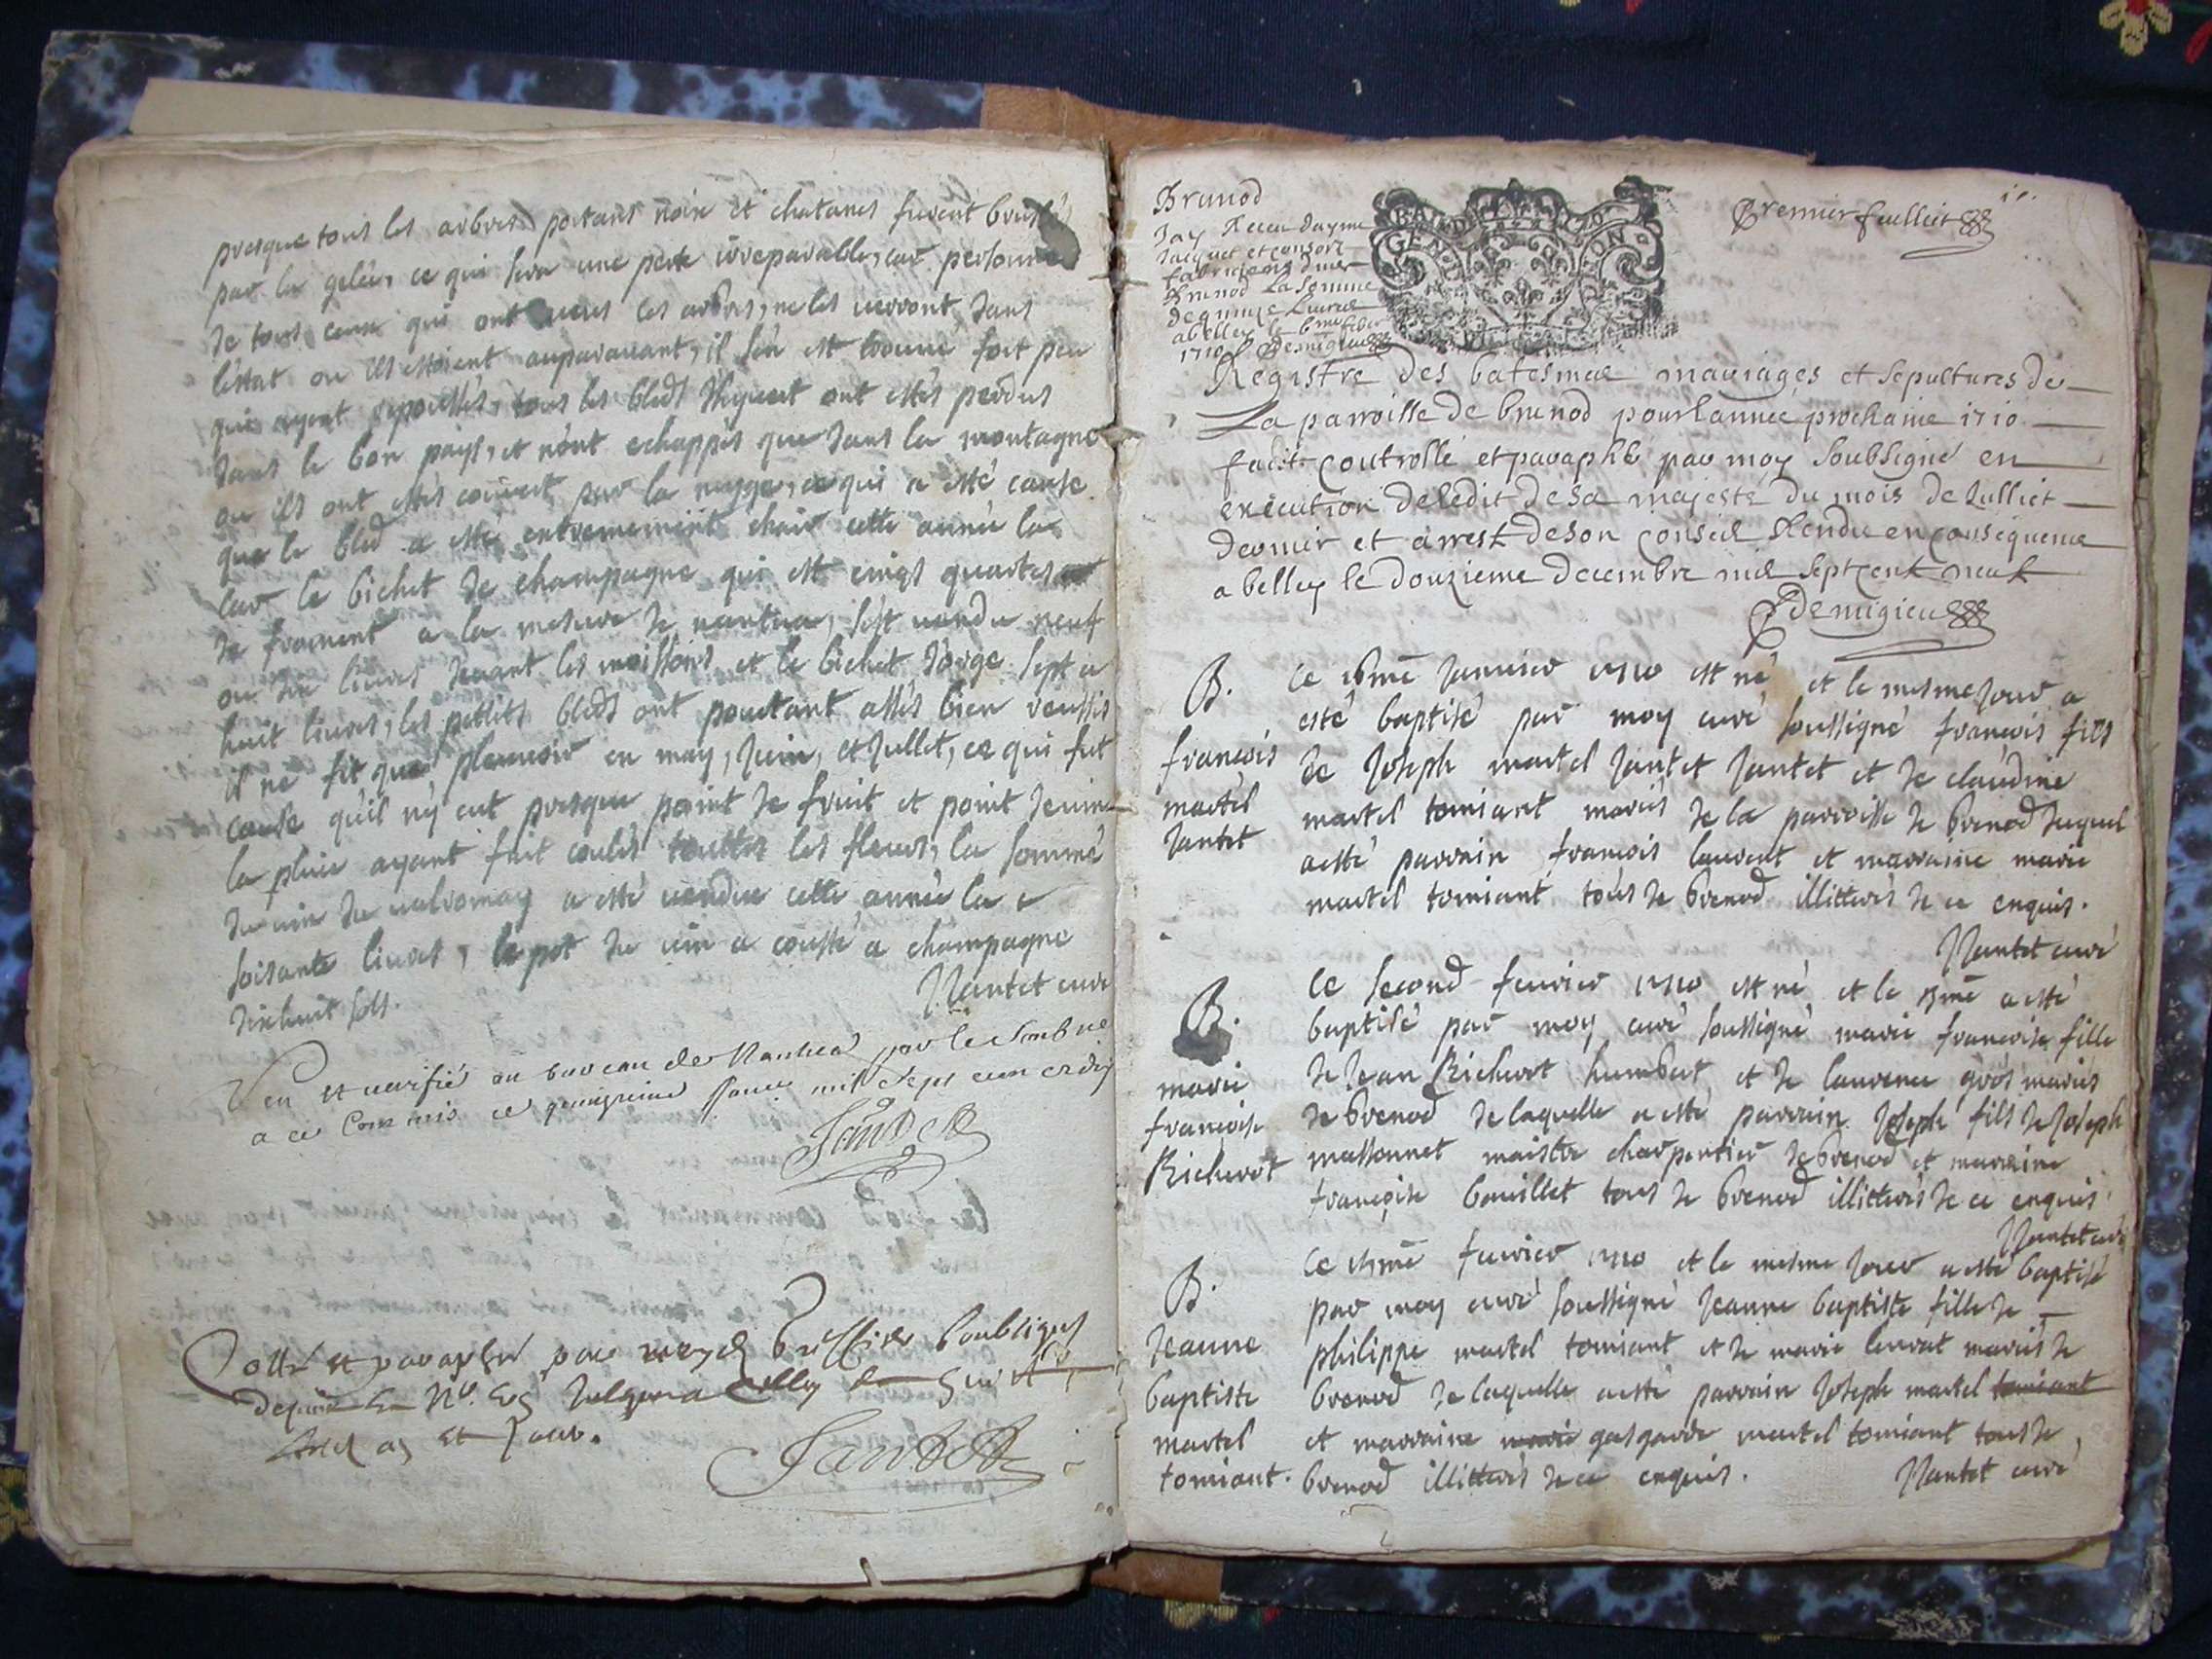 presque tous les arbres portans noix et chatanes furent bruslés
par la gelée, ce qui sera une perte irreparable, car personne
de tous ceux qui ont veus les arbres, ne les verront dans
l'éstat ou ils estoient auparavant, il s'en est trouvé fort peu
qui ayent repoussés, tous les bleds d'hyvert ont estés perdus
dans le bon pays, et n'ont echappés que dans la montagne
ou ils ont estés couvert par la neyge, ce qui a esté cause
que le bled a esté extremement chair cette année la
car le bichet de champagne qui est cinqs quartes
de froment a la mesure de nantua, s'est vendu neuf
ou dix livres devant les moissons et le bichet d'orge sept a
huit livres, les pettits bleds ont pourtant assés bien reussis
il ne fit que pleuvoir en may, juin, et jullet, ce qui fut
cause qu'il n'y eut presque point de fruit et point de vin
la pluie ayant fait coulés touttes les fleurs, la sommé
du vin du valromay a esté vendue cette année la
soisante livres, le pot du vin a cousté a champagne
dixhuit sols.
Jantet curé
Veu et verifié au bureau de Nantua par le
a ce Commis ce janvier mil sept cent et dix
Cotté et paraphé par
et jour.
Brunod
Premier feulliet
Jay Receu dayme
Jacquet et consort
fabriciens dud
Brunod La Somme
de quinze Livres
a belley le
1710 Demigieu
GEN DIJON
Registre des batesmes mariages et sepultures de
La parroisse de brunod pour lannee prochaine 1710
controllé et paraphé par moy Soubsigné en
execution deledit de Sa majesté du mois de Julliet
dernier et arrest de son Conseil Rendu en consequence
a belley le douzieme decembre mil sept cent neuf
Demigieu
B.
françois
martel
jantet
Ce janvier 1710 est né et le mesme jour a
esté baptisé par moy curé soussigné françois fils
de Joseph martel jantet jantet et de claudine
martel tomiant mariés de la parroisse de brenod duquel
a esté parrain françois laurent et marraine marie
martel tomiant tous de brenod illitterés de ce enquis.
Jantet curé
B.
marie
françoise
Richerot
Ce second fevrier 1710 est né et le a esté
baptisé par moy curé soussigné marie françoise fille
de Jean Richerot humbert et de laurence gros mariés
de brenod de laquelle a esté parrain Joseph fils de Joseph
massonnet maistre charpentier de brenod et marraine
françoise bouillet tous de brenod illitterés de ce enquis.
Jantet curé
B.
Jeanne
baptiste
martel
tomiant.
Ce fevrier 1710 et le mesme jour a esté baptisé
par moy curé soussigné Jeanne baptiste fille de
philippe martel tomiant et de marie levrat mariés de
brenod de laquelle a esté parrain Joseph martel tomiant
et marraine marie gasparde martel tomiant tous de
brenod illitterés de ce enquis. Jantet curé